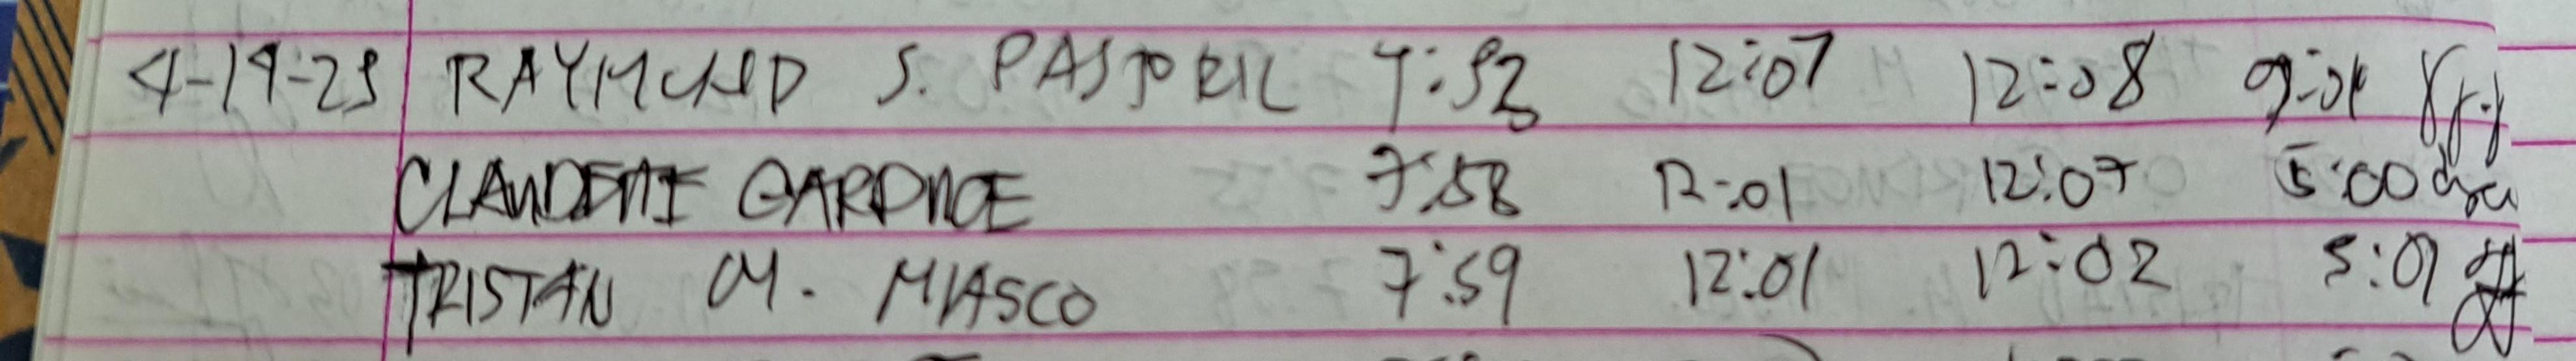 4-19-25 RAYMUND S. PASTORIL 7:52 12:07 12:08
CLAUDENE GARDNCE 7:58 12:01 12:07 5:00
TRISTAN M. MIASCO 7:59 12:01 12:02 5:01